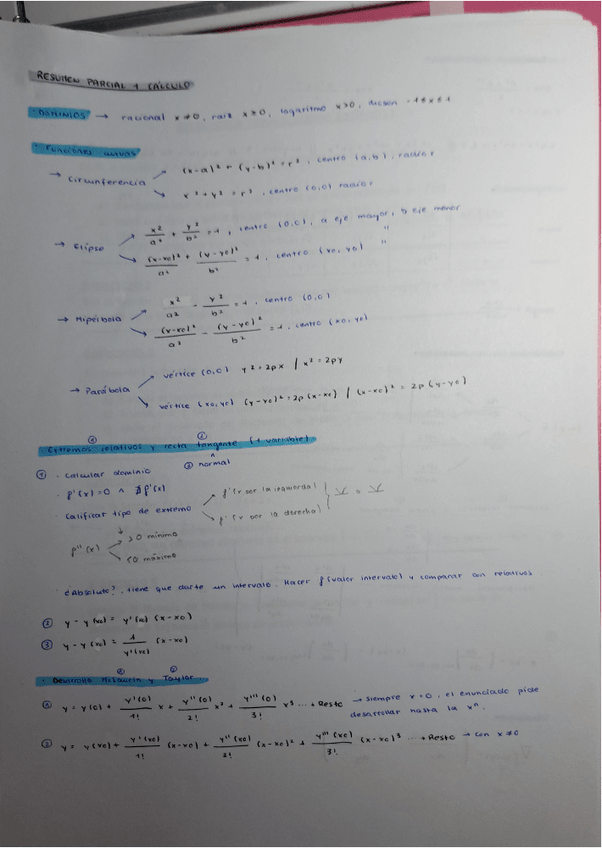 RESUMEN PARCIAL 1 CÁLCULO
· DOMINIOS → racional x≠0, raíz x≥0, logaritmo x>0, arcsen -1≤x≤1
· Funciones curvas
→ Circunferencia
(x-a)² + (y-b)² = r², centro (a,b), radio r
x² + y² = r², centro (0,0) radio r
→ Elipse
x²/a² + y²/b² = 1, centro (0,0), a eje mayor, b eje menor
(x-x0)²/a² + (y-y0)²/b² = 1, centro (x0, y0) "
→ Hipérbola
x²/a² - y²/b² = 1, centro (0,0)
(x-x0)²/a² - (y-y0)²/b² = 1, centro (x0, y0)
→ Parábola
vértice (0,0) y² = 2px / x² = 2py
vértice (x0, y0) (y-y0)² = 2p(x-x0) / (x-x0)² = 2p(y-y0)
① ②
Extremos relativos y recta tangente (1 variable)
③ normal
① · Calcular dominio
· f'(x)=0 ∧ ∄f'(x)
· Calificar tipo de extremo
f'(x por la izquierda)
f'(x por la derecha)
f''(x)
>0 mínimo
<0 máximo
¿Absoluto?, tiene que darte un intervalo. Hacer f(valor intervalo) y comparar con relativos
② y - y(x0) = y'(x0) (x-x0)
③ y - y(x0) = 1/y'(x0) (x-x0)
· Desarrollo McLaurin y Taylor
y = y(0) + y'(0)/1! x + y''(0)/2! x² + y'''(0)/3! x³ ... + Resto → siempre x=0, el enunciado pide
desarrollar hasta la xⁿ.
② y = y(x0) + y'(x0)/1! (x-x0) + y''(x0)/2! (x-x0)² + y'''(x0)/3! (x-x0)³ ... + Resto → con x≠0